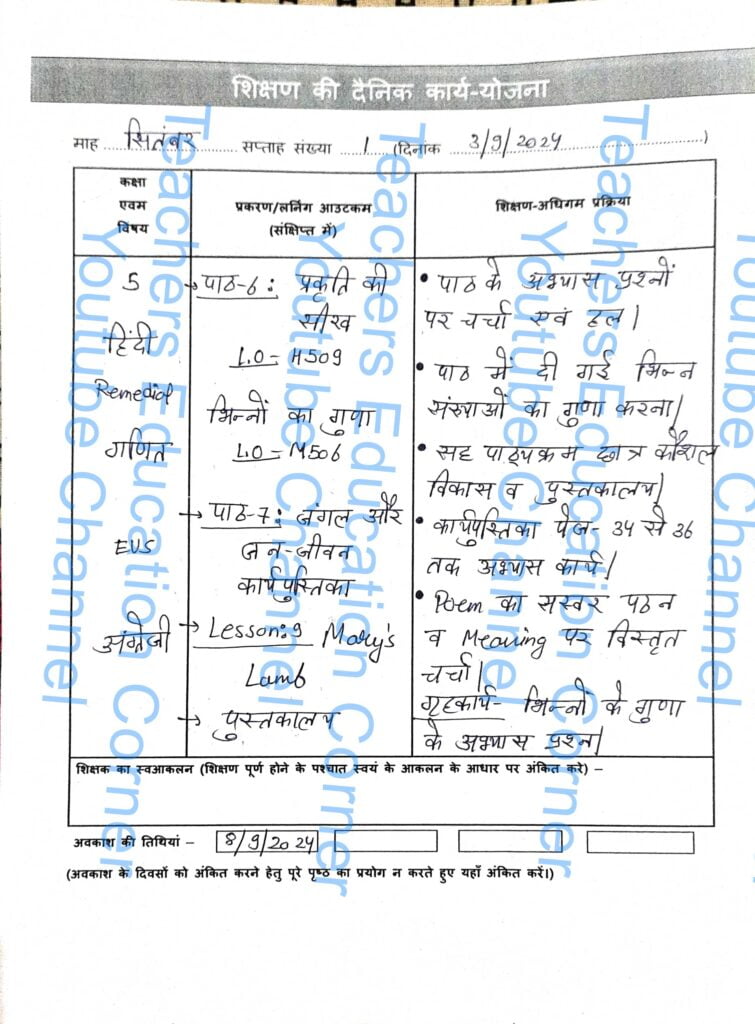 शिक्षण की दैनिक कार्य-योजना
माह सितंबर सप्ताह संख्या 1 (दिनांक 3/9/2024)
कक्षा
एवम
विषय
प्रकरण/लर्निंग आउटकम
(संक्षिप्त में)
शिक्षण-अधिगम प्रक्रिया
5
हिंदी
Remedial
गणित
EVS
अंग्रेजी
→ पाठ-6: प्रकृति की
सीख
L.O- H509
भिन्नों का गुणा
L.O- M506
→ पाठ-7: जंगल और
जन-जीवन
कार्यपुस्तिका
→ Lesson:9 Mary's
Lamb
→ पुस्तकालय
• पाठ के अभ्यास प्रश्नों
पर चर्चा एवं हल।
• पाठ में दी गई भिन्न
संख्याओं का गुणा करना।
• सह पाठ्यक्रम छात्र कौशल
विकास व पुस्तकालय।
• कार्यपुस्तिका पेज- 34 से 36
तक अभ्यास कार्य।
• Poem का सस्वर पठन
व Meaning पर विस्तृत
चर्चा।
गृहकार्य- भिन्नों के गुणा
के अभ्यास प्रश्न।
शिक्षक का स्वआकलन (शिक्षण पूर्ण होने के पश्चात स्वयं के आकलन के आधार पर अंकित करे) –
अवकाश की तिथियां – 8/9/2024
(अवकाश के दिवसों को अंकित करने हेतु पूरे पृष्ठ का प्रयोग न करते हुए यहाँ अंकित करें।)
Teachers Education Corner
Youtube Channel
Teachers Education Corner
Youtube Channel
Teachers Education Corner
Youtube Channel
Youtube Channel